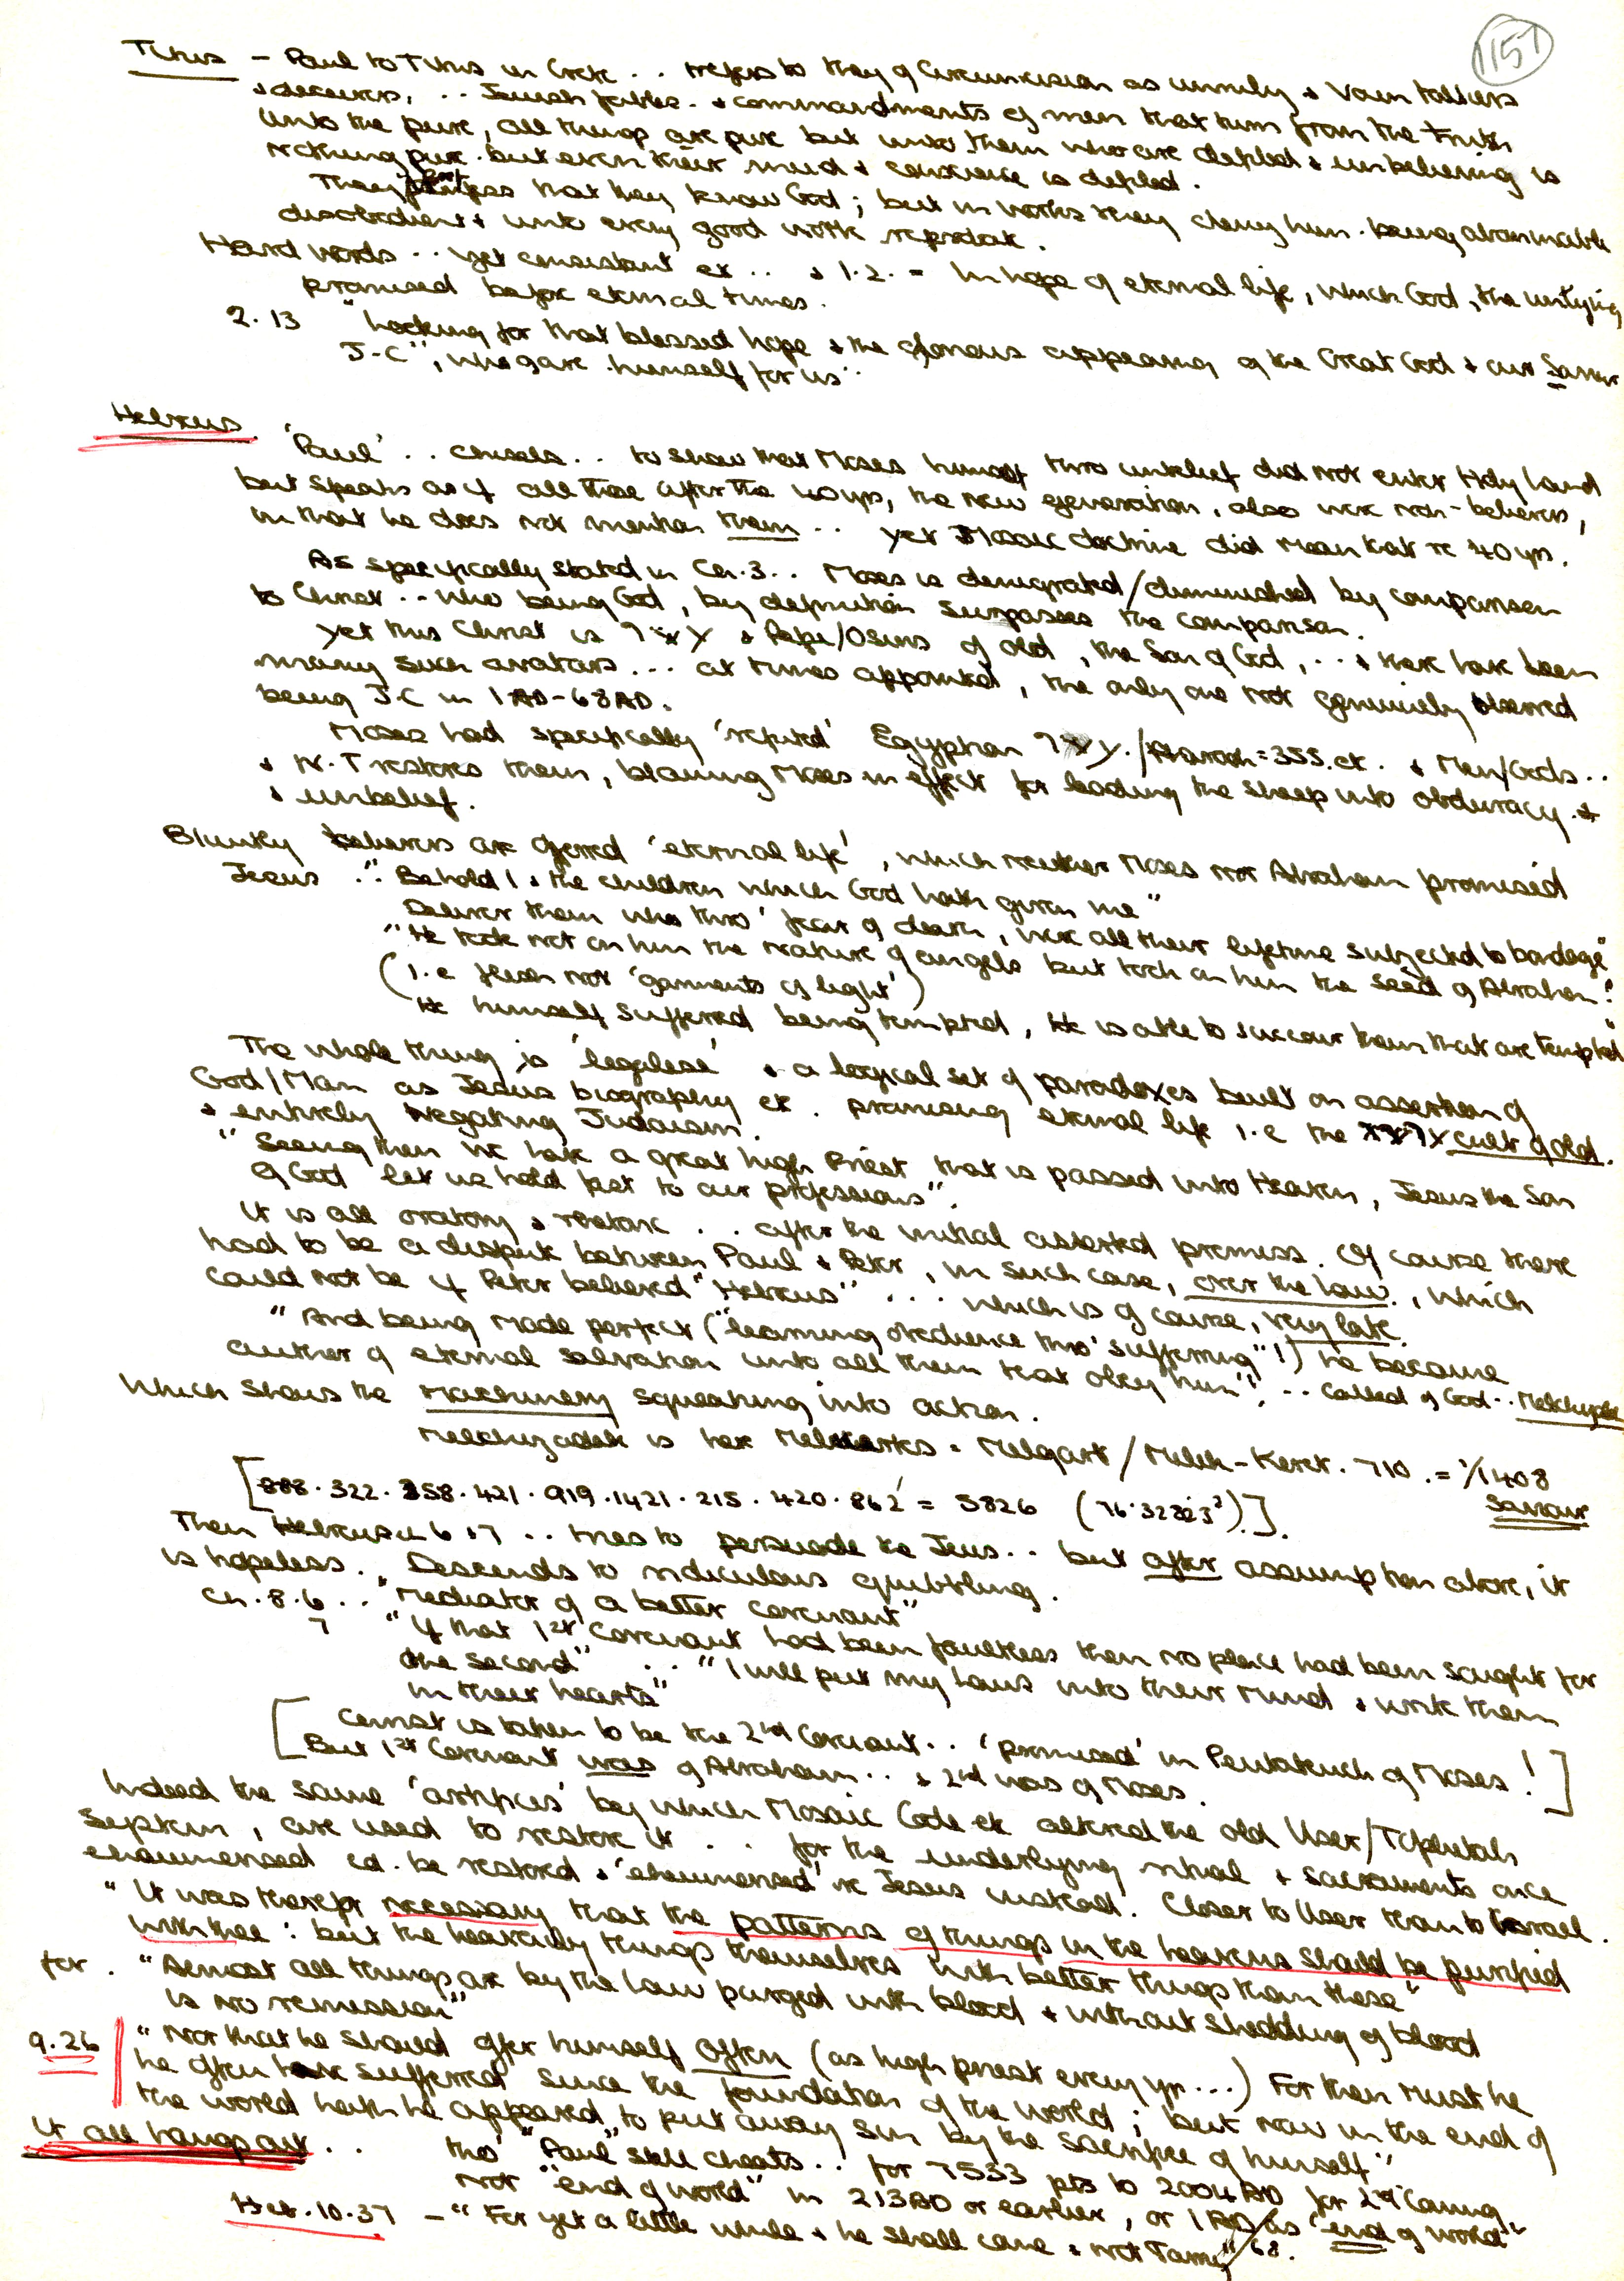 1151
Titus - Paul to Titus in Crete .. refers to they of Circumcision as unruly & Vain talkers
& deceivers, .. Jewish fables. & commandments of men that turn from the truth
Unto the pure, all things are pure but unto them who are defiled & unbelieving is
nothing pure. but even their mind & conscience is defiled.
They profess that they know God; but in works they deny him. being abominable
disobedient & unto every good work reprobate.
Hard words .. yet consistant et .. & 1.2. = In hope of eternal life, which God, the unlying
promised before eternal times.
2.13 "looking for that blessed hope & the glorious appearing of the Great God & our Saviour
J-C", who gave himself for us"
Hebrews. 'Paul' .. chisels .. to show that Moses himself thro unbelief did not enter Holy Land
but speaks as if all those after the 40 yrs, the new generation, also were non-believers,
in that he does not mention them .. yet Mosaic doctrine did mean that re 40 yrs.
As specifically stated in Ch.3.. Moses is denigrated/diminished by comparison
to Christ .. who being God, by definition surpasses the comparison.
Yet this Christ is & Pepi/Osiris of old, the Son of God, ... & there have been
many such avatars ... at times appointed, the only one not genuinely
being J.C in 1AD-68AD.
Moses had specifically 'refuted' Egyptian /Pharaoh=355.et. & Men/Gods ..
& N.T restores them, blaming Moses in effect for leading the sheep into obduracy &
& unbelief.
Bluntly believers are offered 'eternal life', which neither Moses nor Abraham promised
Jesus .. "Behold I & the children which God hath given me"
Deliver them who thro' fear of death, were all their lifetime subjected to bondage"
"He took not on him the nature of angels but took on him the seed of Abraham"
(i.e flesh not 'garments of light')
He himself suffered being tempted, He is able to succour them that are tempted"
The whole thing is 'legalese' & a logical set of paradoxes built on assertion of
God/Man as Jesus biography et. promising eternal life i.e the cult of old.
& entirely negating Judaism.
"Seeing then we have a great high Priest that is passed into Heaven, Jesus the Son
of God let us hold fast to our professions".
It is all oratory & rhetoric .. after the initial asserted premiss. Of course there
had to be a dispute between Paul & Peter, in such case, over the law., which
could not be if Peter believed "Hebrews" ... which is of course, very late.
"And being made perfect ("learning obedience thro' suffering"!) he became
author of eternal salvation unto all them that obey him", .. called of God .. Melchyzdek
Which shows the Machinery squeaking into action.
Melchyzadek is here Melkarks = Melqart / Melek-Keret. 710. = 1/1408
Saviour
[888.322.358.421.919.1421.215.420.862 = 5826 (76.3282³²)].
Then Hebrews ch 6 & 7 .. tries to persuade the Jews .. but after assumption above, it
is hopeless. Descends to ridiculous quibbling.
Ch.8.6 .. "Mediator of a better covenant"
7 "If that 1st Covenant had been faultless then no place had been sought for
the second" .. "I will put my laws into their mind & write them
in their hearts"
[Christ is taken to be the 2nd Covenant .. 'promised' in Pentateuch of Moses!
But 1st Covenant was of Abraham .. & 2nd was of Moses.]
Indeed the same 'artifices' by which Mosaic Code et altered the old User/Tcphetah
System, are used to restore it .. for the underlying ritual & sacraments once
ehoumerised cd. be restored & 'ehoumerised' re Jesus instead. Closer to User than to Israel.
"It was therefr necessary that the patterns of things in the heavens should be purified
with thee: but the heavenly things themselves with better things than these"
for. "Almost all things are by the law purged with blood & without shedding of blood
is no remission"
9.26 "Nor that he should offer himself often (as high priest every yr ...) For then must he
he often have suffered since the foundation of the world; but now in the end of
the world hath he appeared to put away sin by the sacrifice of himself"
It all hangs on .. tho' "Paul" still cheats .. for 7533 pts to 2004AD for 2nd Coming
not "end of world" in 213AD or earlier, or 1AD/as "end of world"
Heb.10.37 - "For yet a little while & he shall come & not Tarry" 68.